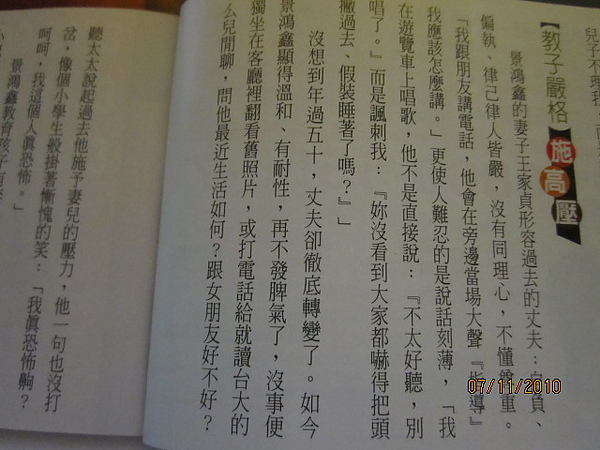 兒子不理
【教子嚴格 施高壓
景鴻鑫的妻子王家貞形容過去的丈夫：自負、
偏執、律己律人皆嚴，沒有同理心，不懂尊重。
「我跟朋友講電話，他會在旁邊當場大聲『指導』
我應該怎麼講。」更使人難忍的是說話刻薄，「我
在遊覽車上唱歌，他不是直接說：『不太好聽，別
唱了。』而是諷刺我：『妳沒看到大家都嚇得把頭
撇過去、假裝睡著了嗎？』」
沒想到年過五十，丈夫卻徹底轉變了。如今
景鴻鑫顯得溫和、有耐性，再不發脾氣了，沒事便
獨坐在客廳裡翻看舊照片，或打電話給就讀台大的
么兒閒聊，問他最近生活如何？跟女朋友好不好？
聽太太說起過去他施予妻兒的壓力，他一句也沒打
岔，像個小學生般掛著慚愧的笑：「我真恐怖齁？
呵呵，我這個人真恐怖。」
景鴻鑫教育孩子
07/11/2010